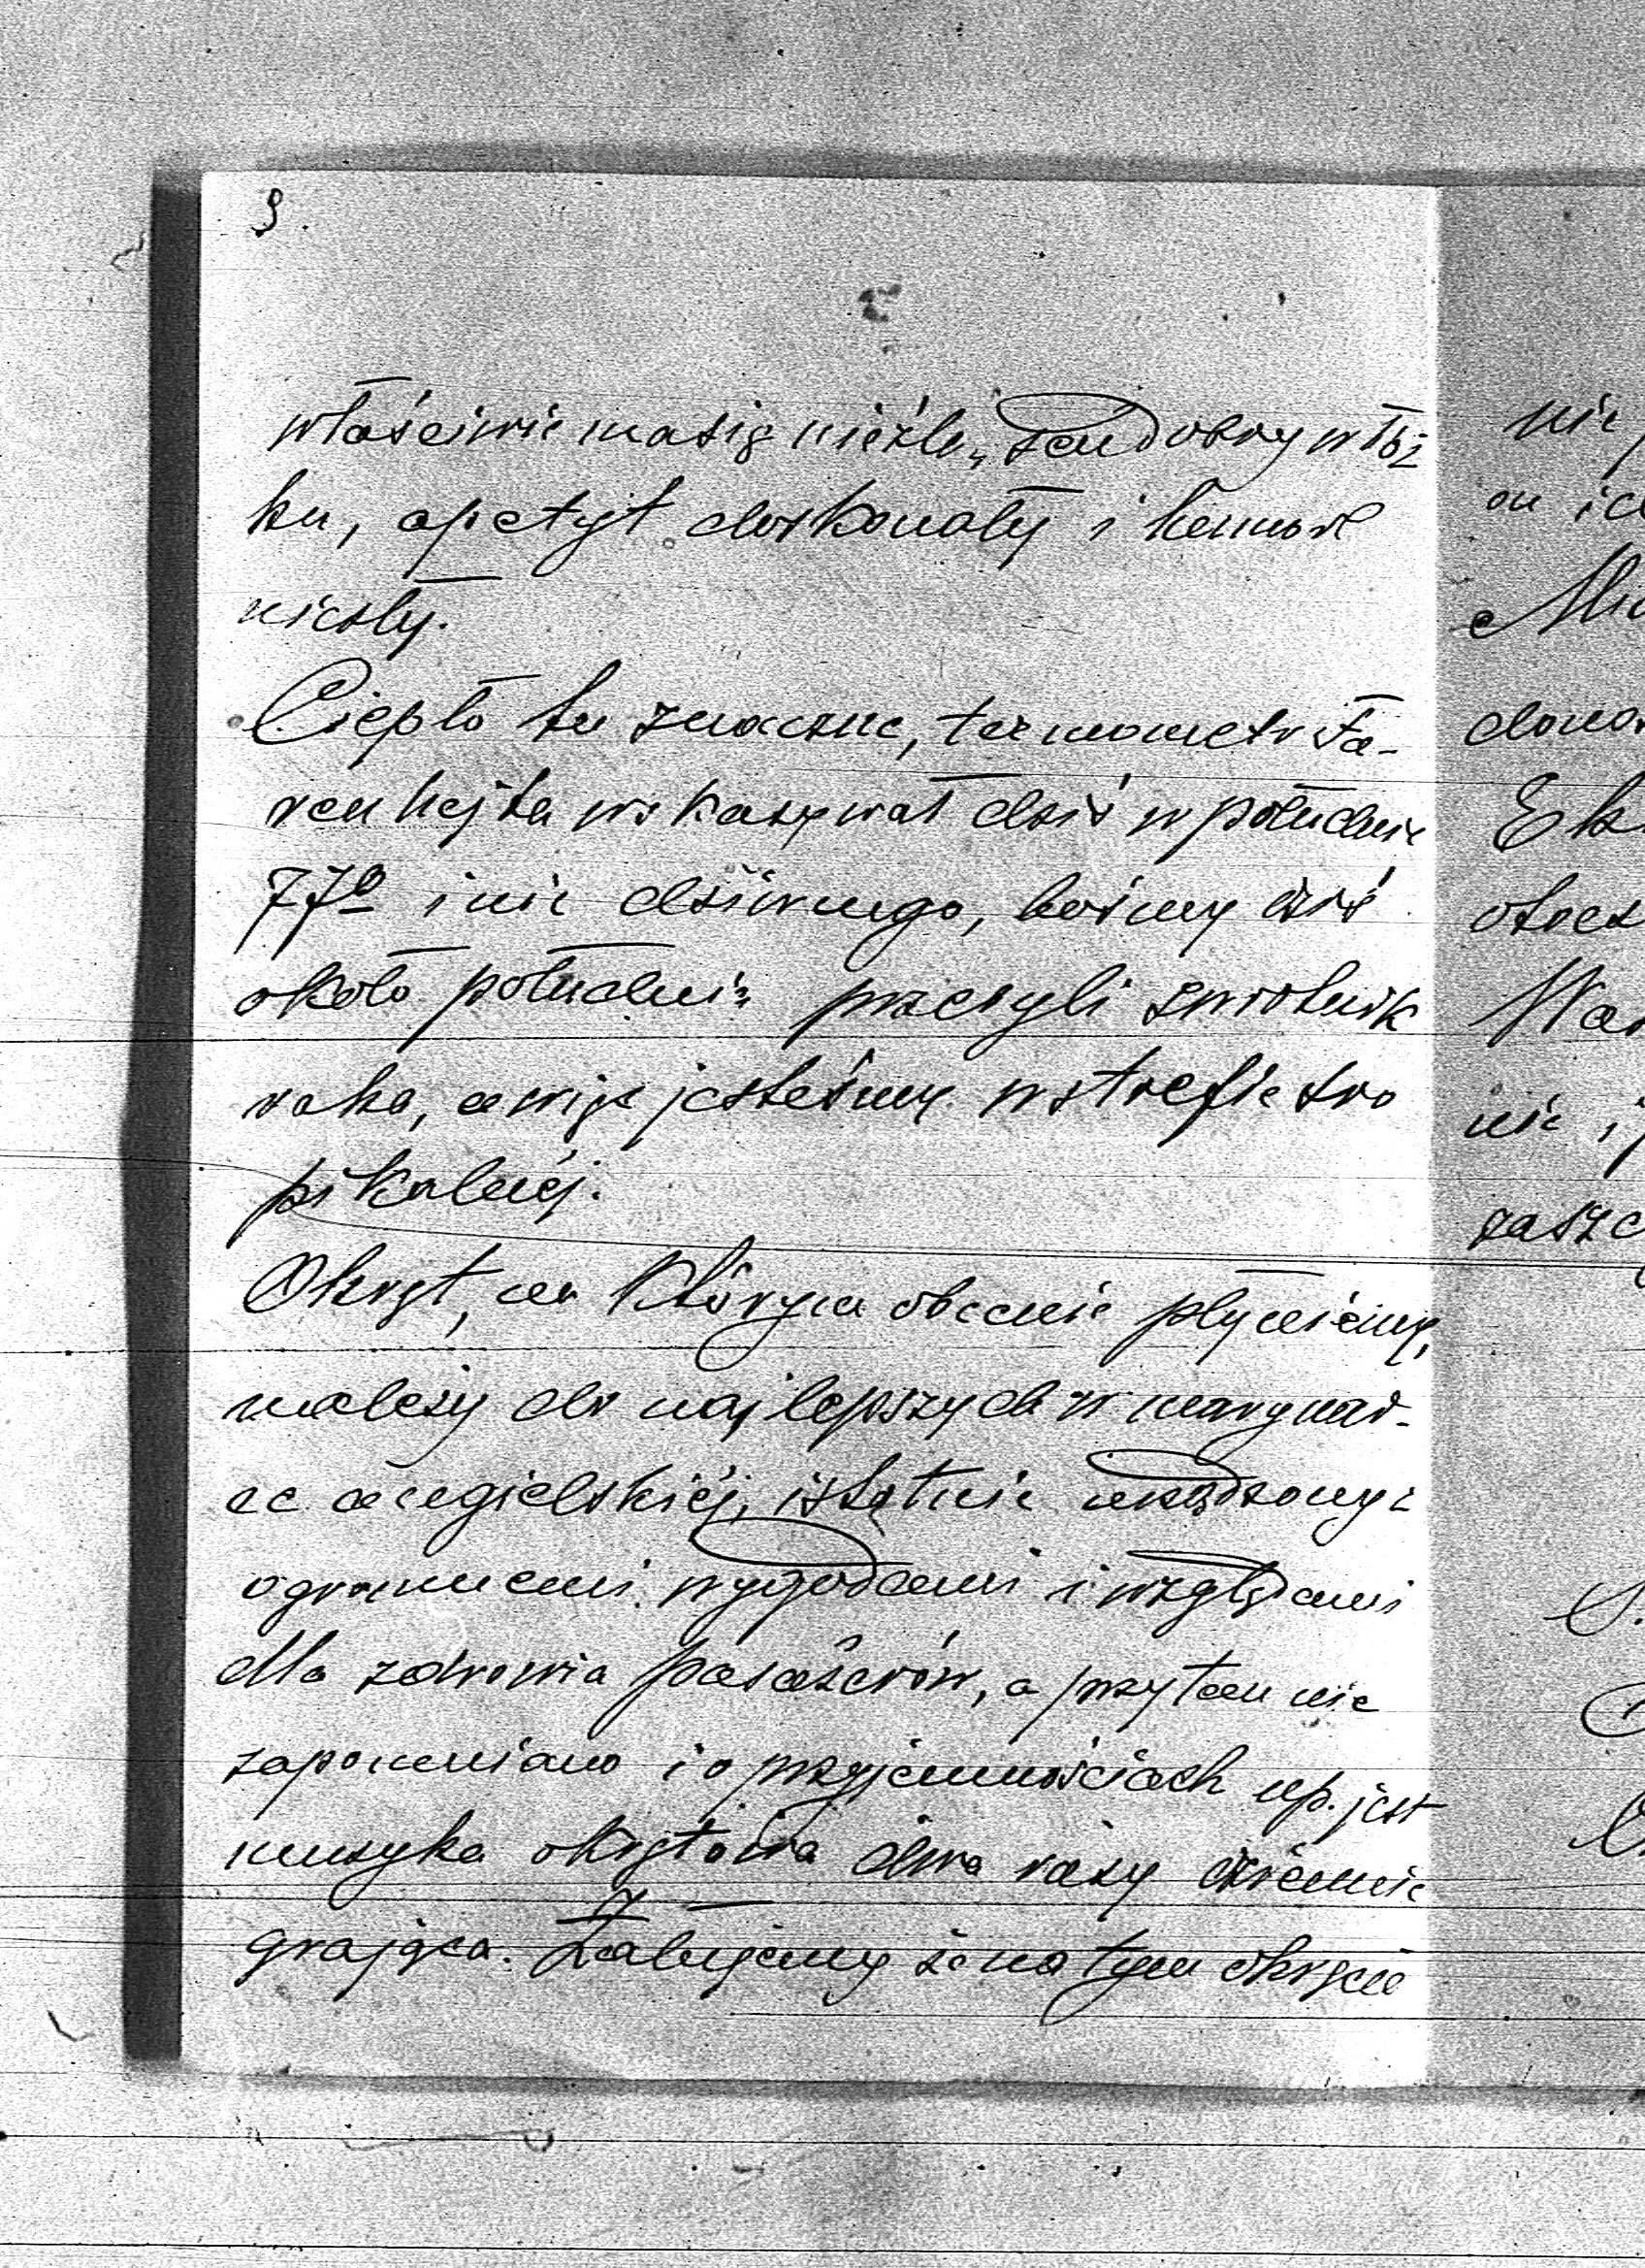 9.
właściwie ma się nieźle, sen dobry w łóż
ku, apetyt doskonały i humor
niezły.
Ciepło tu znaczne, termometr Fa-
renhejta wskazywał dziś w południe
77º i nic dziwnego, bośmy dziś
około południa przeszyli zwrotnik
raka, a więc jesteśmy w strefie tro
pikalnéj.
Okręt, na którym obecnie płyniemy,
należy do najlepszych w marynar-
ce angielskiéj, istotnie urządzony z
ogromnemi wygodami i względami
dla zdrowia pasażerów, a przytem nie
zapomniano i o przyjemnościach np. jest
muzyka okrętowa dwa razy dziennie
grająca. Żałujemy że na tym okręcie
nie
Ek
zasz